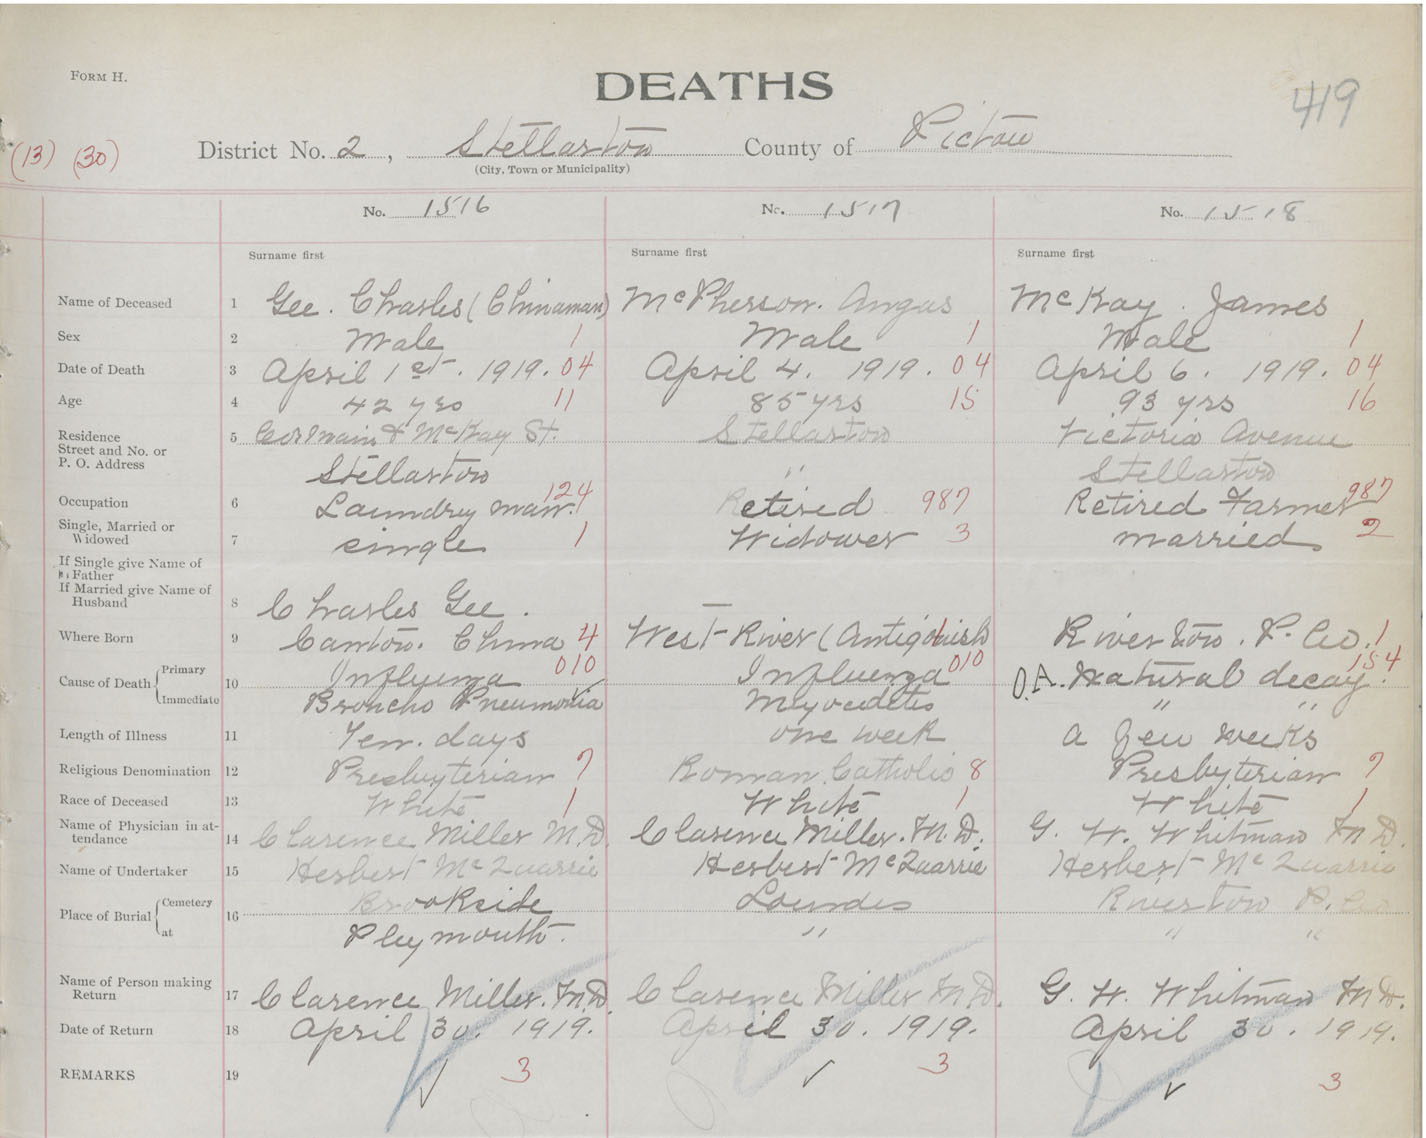 FORM H.
DEATHS
419
(13) (30)
District No. 2, Stellarton County of Pictou
(City, Town or Municipality)
No. 1516 No. 1517 No. 1518
Surname first Surname first Surname first
Name of Deceased 1 Gee. Charles (Chinaman) McPherson. Angus McKay. James
Sex 2 Male 1 Male 1 Male 1
Date of Death 3 April 1st. 1919. 04 April 4. 1919. 04 April 6. 1919. 04
Age 4 42 yrs 11 85 yrs 15 93 yrs 16
Residence Street and No. or P. O. Address 5 Cor Main & McKay St. Stellarton Victoria Avenue
Stellarton " Stellarton
Occupation 6 Laundry man. 124 Retired 987 Retired Farmer 987
Single, Married or Widowed 7 single 1 Widower 3 married 2
If Single give Name of Father
If Married give Name of Husband 8 Charles Gee.
Where Born 9 Canton. China 4 West River (Antigonish) 1 Riverton. P. Co. 1
Cause of Death Primary 10 Influenza 010 Influenza 010 O.A. Natural decay. 154
Immediate Broncho Pneumonia Myocditis " "
Length of Illness 11 Ten. days one week a few weeks
Religious Denomination 12 Presbyterian 7 Roman Catholic 8 Presbyterian 7
Race of Deceased 13 White 1 White 1 White 1
Name of Physician in attendance 14 Clarence Miller M.D. Clarence Miller. M.D. G. W. Whitman M.D.
Name of Undertaker 15 Herbert McQuarrie Herbert McQuarrie Herbert McQuarrie
Place of Burial Cemetery 16 Brookside Lourdes Riverton P. Co
at Pleymouth. " " "
Name of Person making Return 17 Clarence Miller. M.D. Clarence Miller M.D. G. W. Whitman M.D.
Date of Return 18 April 30. 1919. April 30. 1919. April 30. 1919.
REMARKS 19 3 3 3